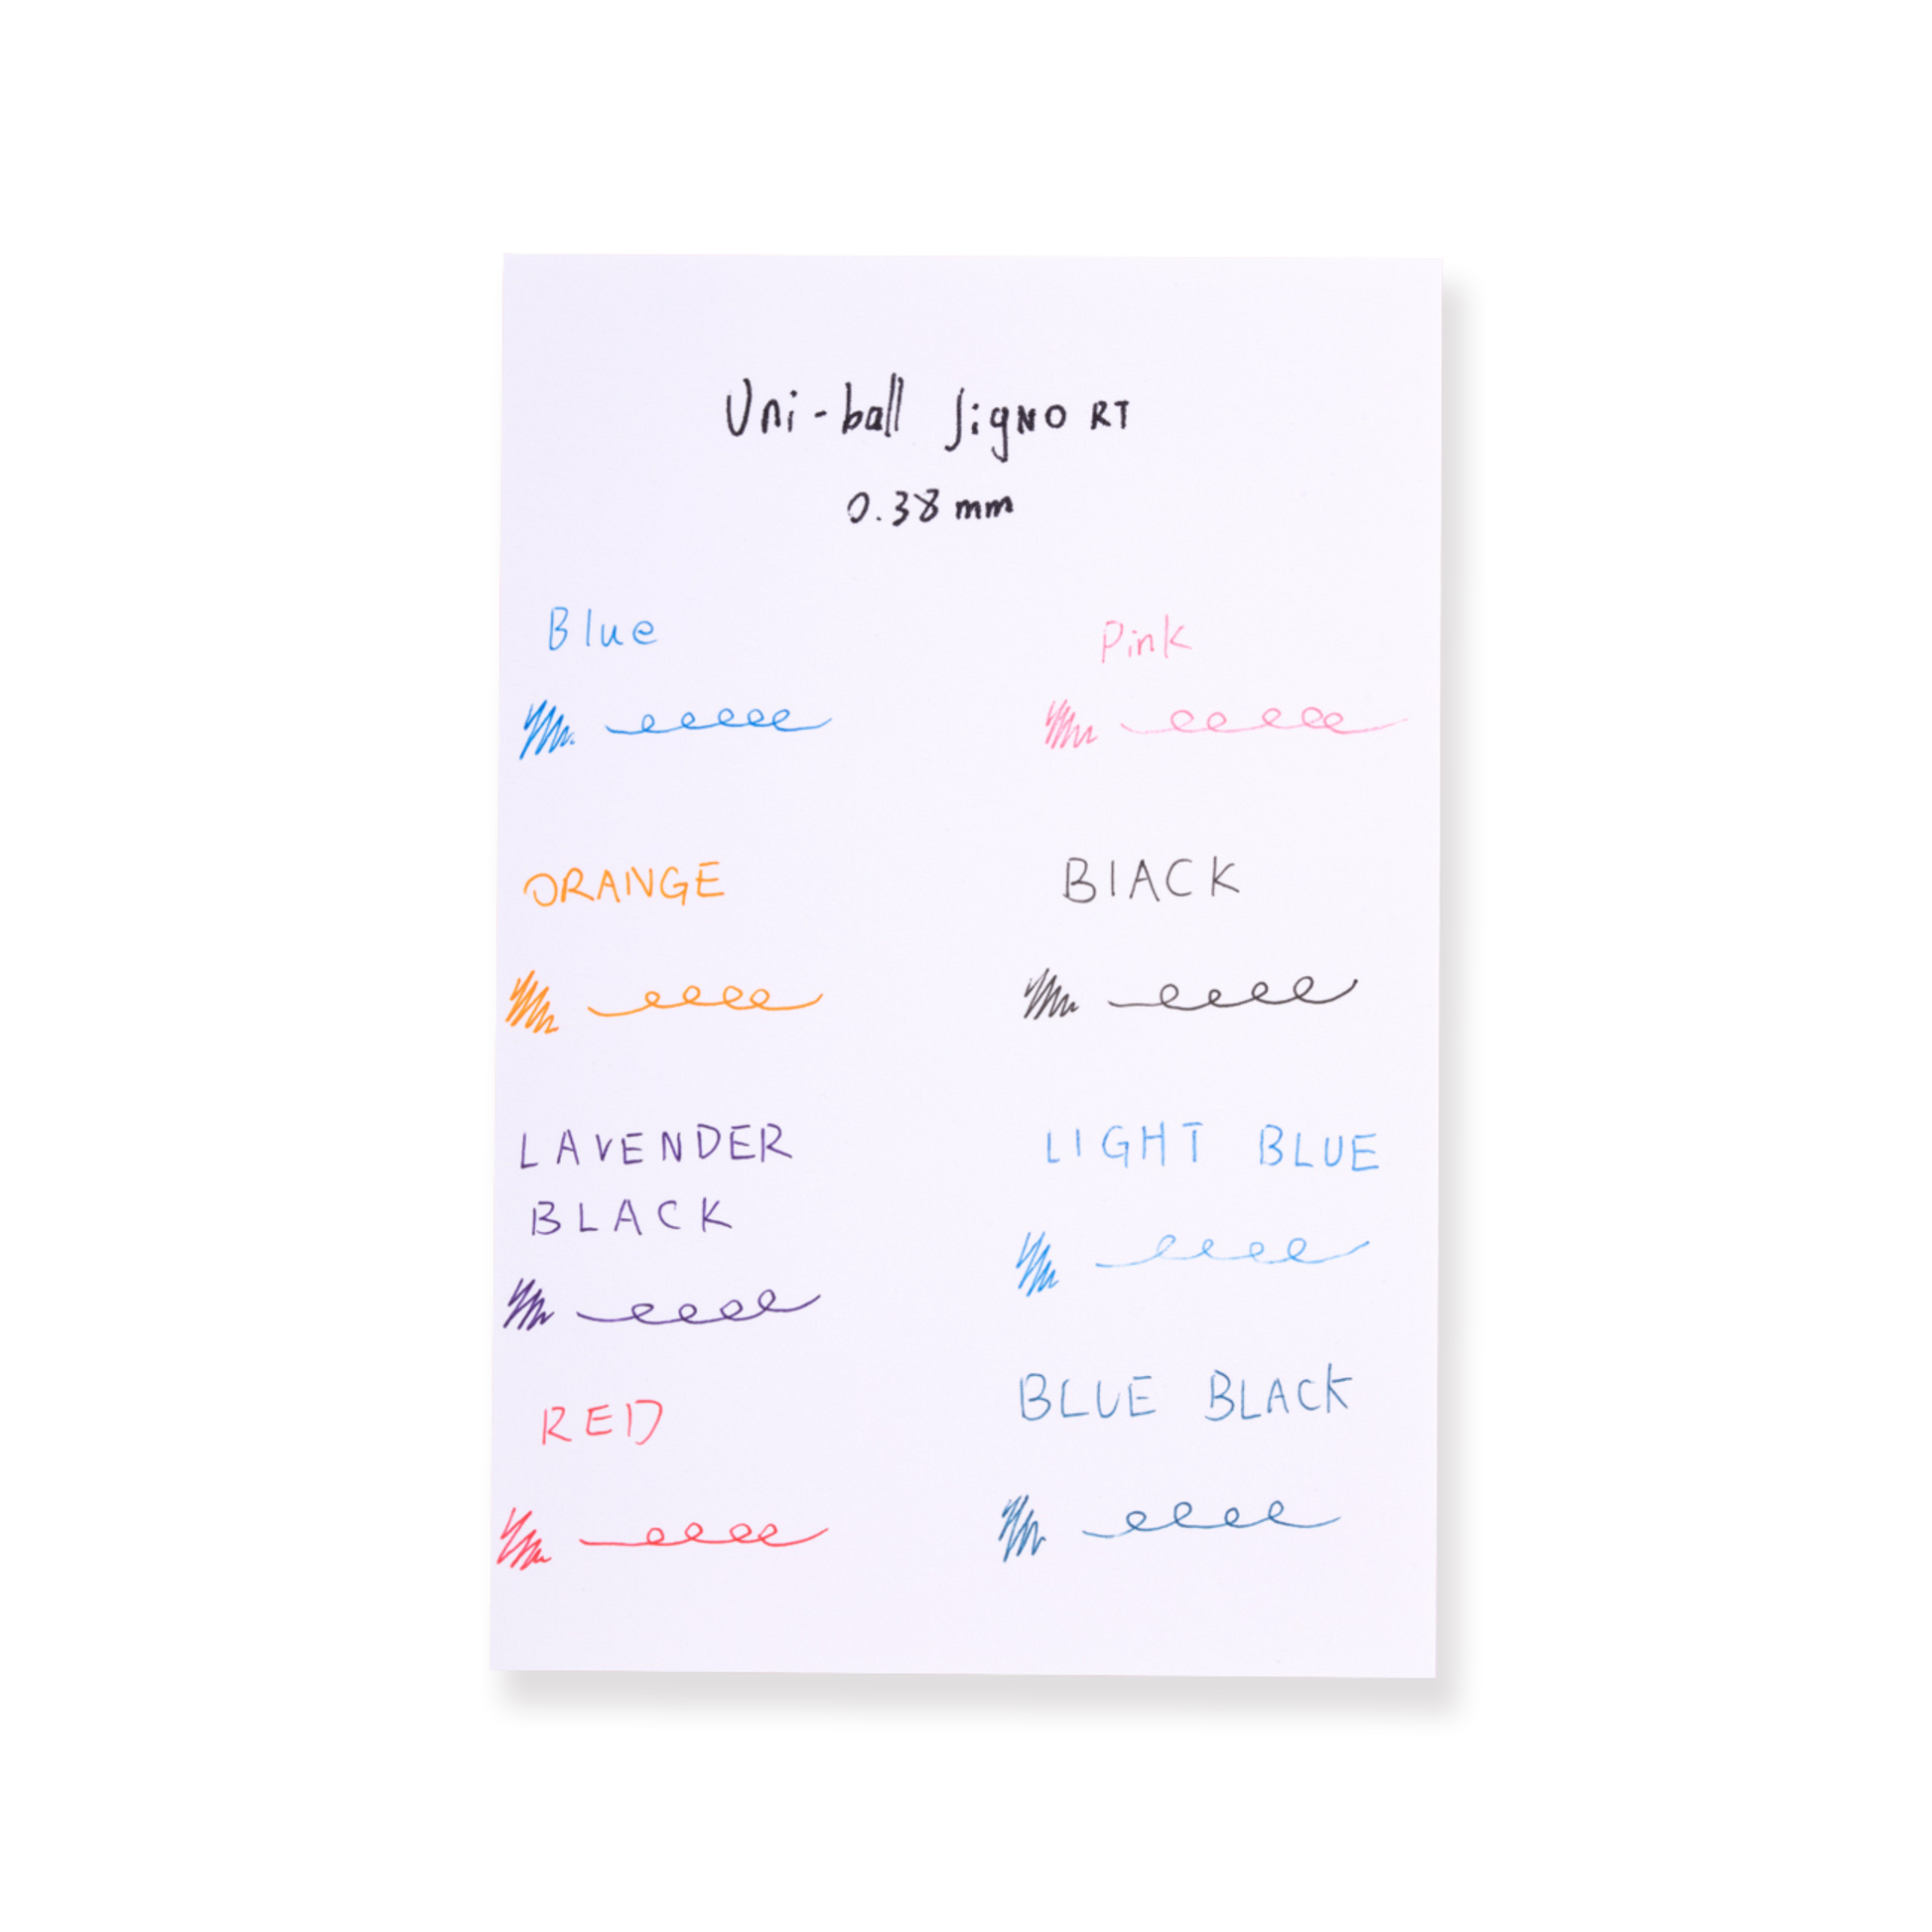 Uni-ball SigNO RT
0.38 mm
Blue
Pink
ORANGE
BlACK
LAVENDER
BLACK
LIGHT BLUE
RED
BLUE BLACK